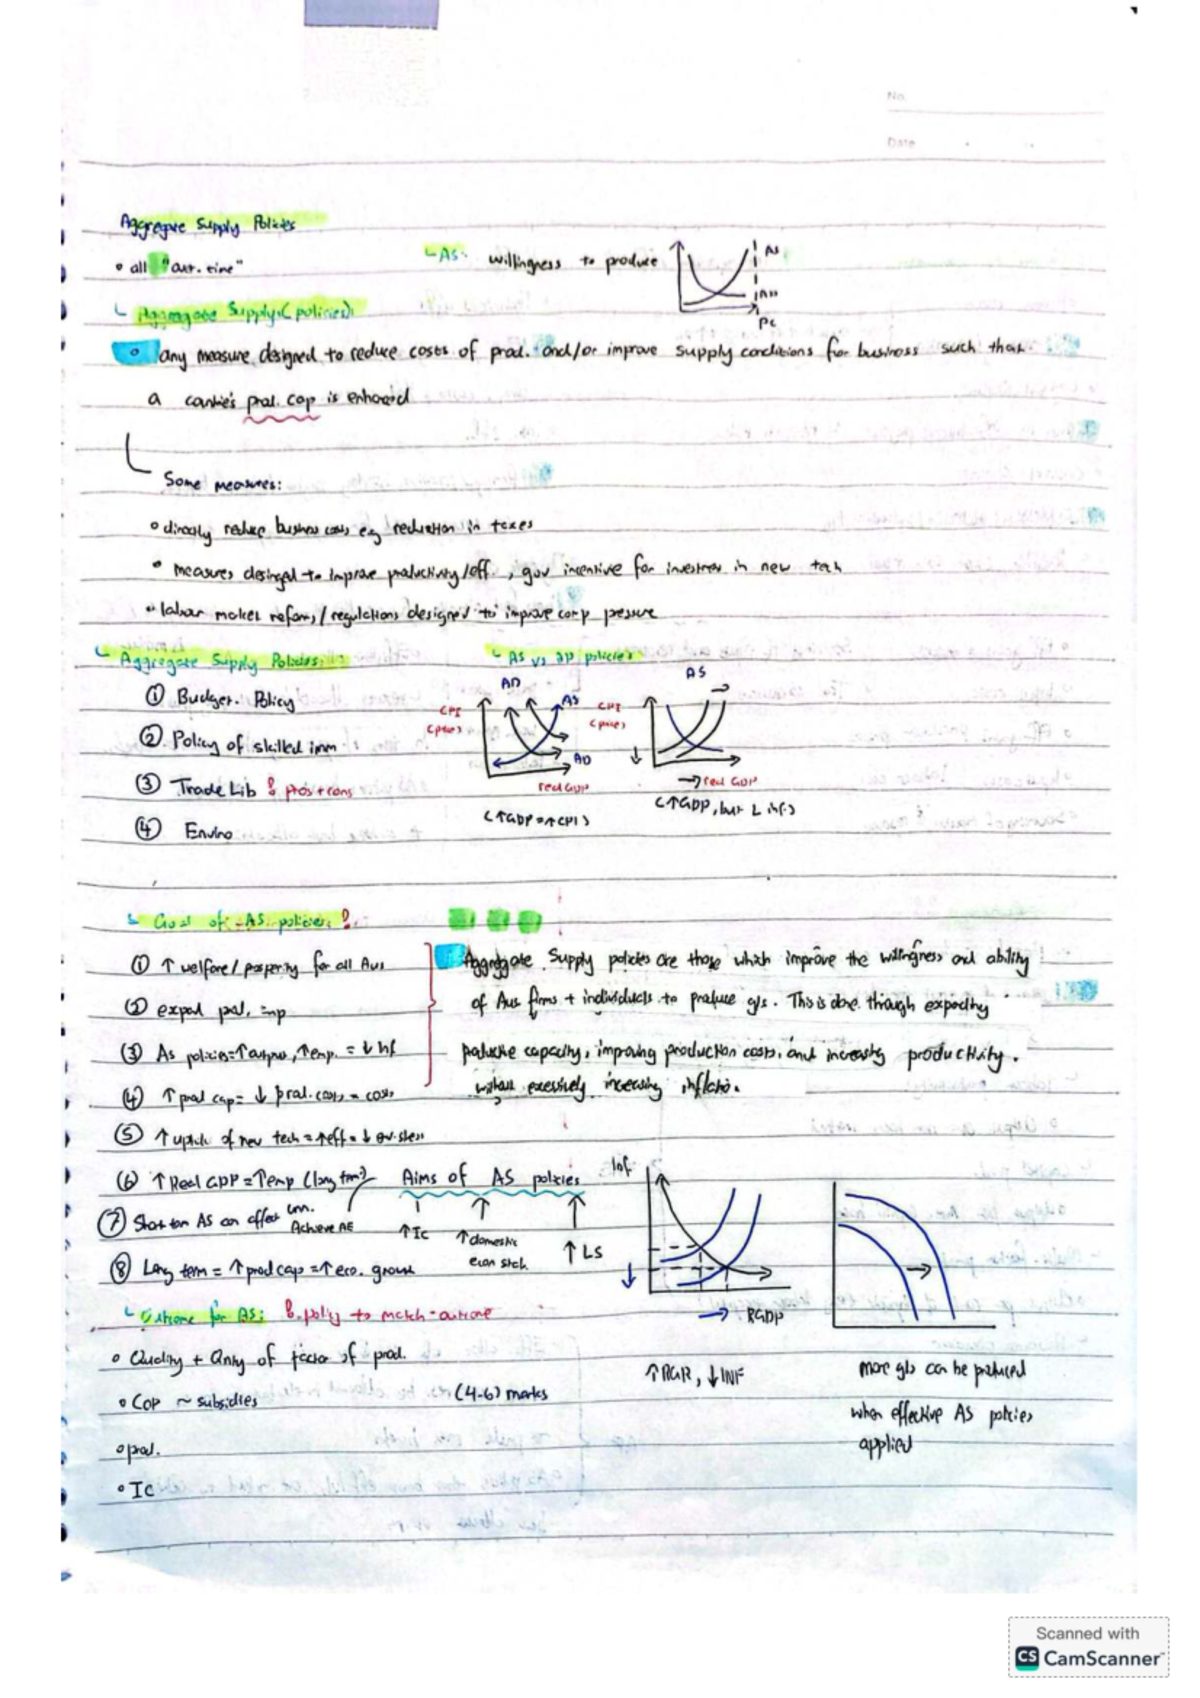 No.
Date
Aggregate Supply Policies
• all "
AS: willingness to produce
AS
PC
Aggregate Supply (policies):
any measure designed to reduce costs of prod. and/or improve supply conditions for business such that
a prod. cap is enhanced
Some measures:
directly reduce business costs eg reduction in taxes
measures designed to improve productivity/eff, gov incentive for in new tech
labour market reforms/regulations designed to improve comp pressure
Aggregate Supply Policies:
AS vs AD policies
① Budget. Policy
② Policy of skilled imm
③ Trade Lib &
④ Enviro
AD
AS
CPI
(price)
AD
real GDP
(↑GDP=↑CPI)
AS
CPI
(price)
→real GDP
(↑GDP, but ↓ inf.)
Goal of AS policies:
① ↑ welfare/prosperity for all Aus
②
③ AS policies=↑output, ↑emp. = ↓ inf
④ ↑prod cap= ↓ prod. costs = costs
⑤ ↑uptake of new tech=↑eff=
⑥ ↑Real GDP=↑emp (long term)
⑦ Short term AS can effect
Achieve AE
⑧ Long term = ↑prod cap=↑eco. growth
Aggregate Supply policies are those which improve the willingness and ability
of Aus firms + individuals to produce g/s. This is done through expanding
productive capacity, improving production costs, and increasing productivity.
without excessively increasing inflation.
Aims of AS policies
↑Ic
↑domestic
econ
↑ LS
Inf.
→ RGDP
↑RGR, ↓INF
more g/s can be produced
when effective AS policies
applied
Outcome for AS: policy to match outcome
Quality + Qnty of factor of prod.
COP ~ subsidies (4-6) marks
prod.
IC
Scanned with
CS CamScanner